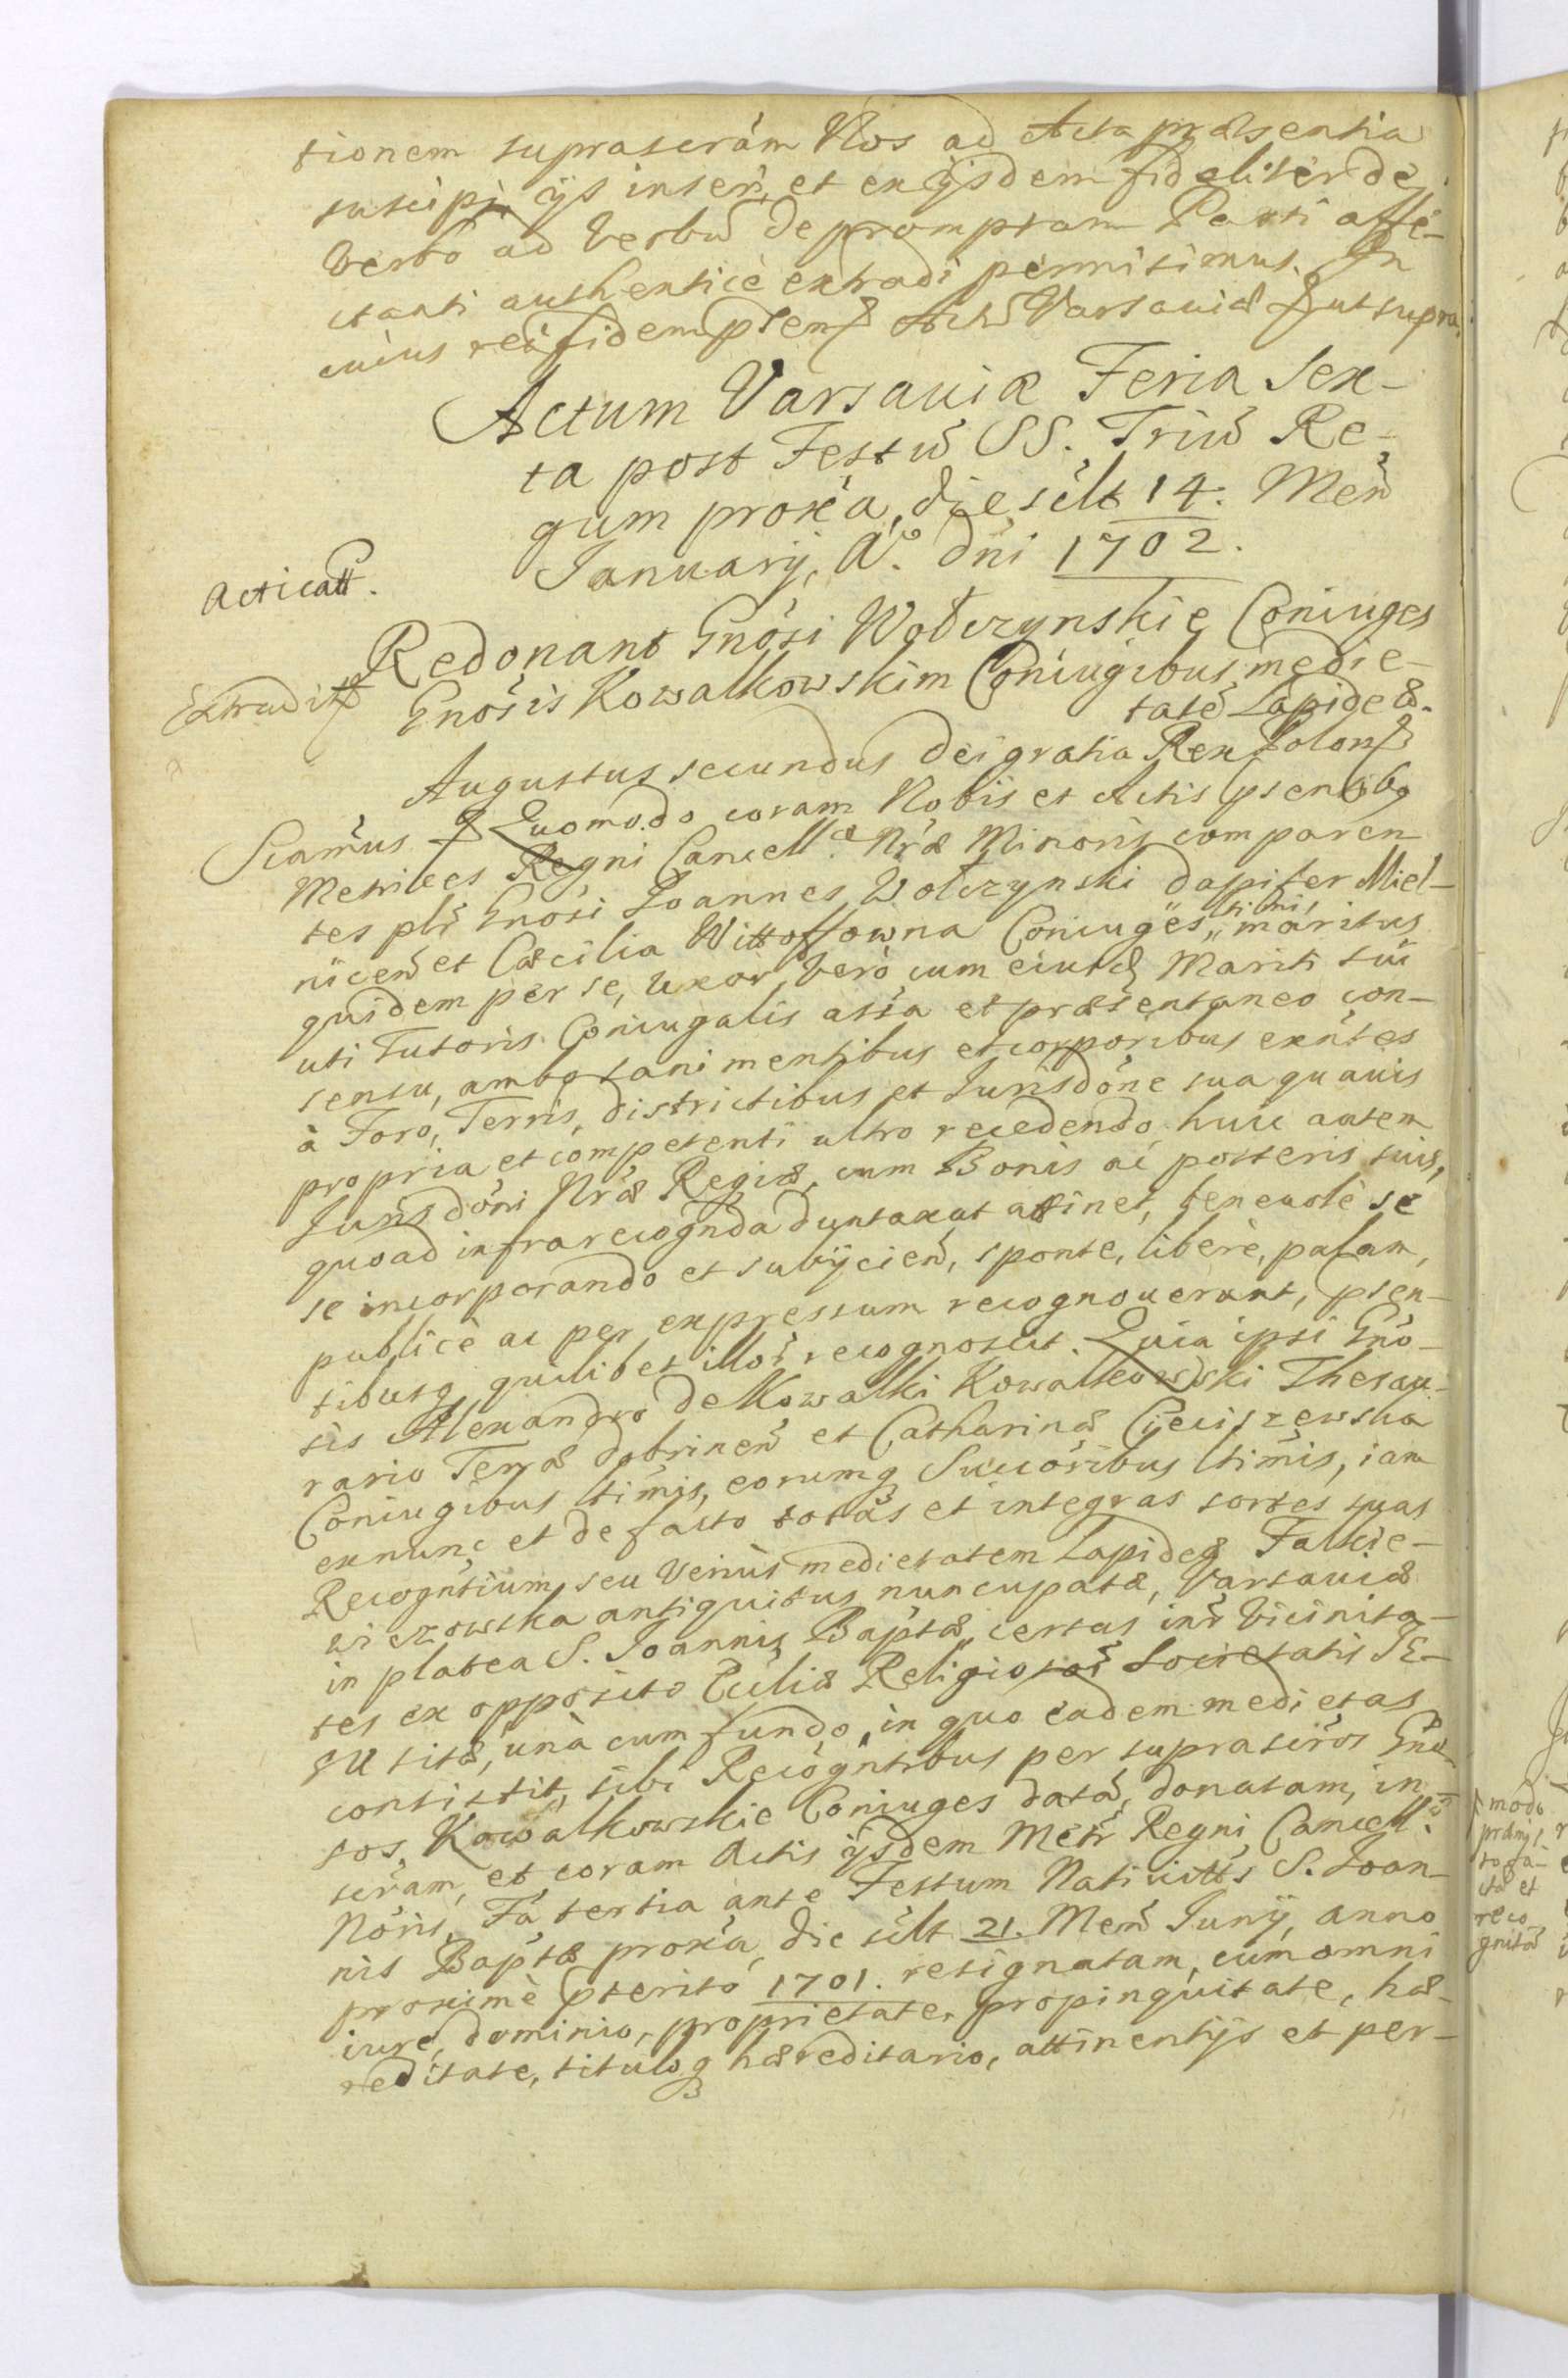 tionem suprascrãm Nos ad Acta præsentia
suscipi, ijs inseri, et ex ijsdem fideliter de
verbo ad verbũ depromptam Parti affe-
ctanti authenticè extradi permisimus. In
cuius rei fidem pñtem Actũ Varsaviæ ut supra.
Actum Varsaviæ Feria Sex-
ta post Festũ SS. Triũ Re-
gum proxa, die scilt 14. Meñ
Januarij, Aº. Dñi 1702.
Acticatt.
Redonant Gnõsi Wołczynskie Coniuges
Extradit
Gnõsis Kowalkowskim Coniugibus medie-
tatẽ Lapideæ.
Augustus secundus Dei gratia Rex Polon
Sciamus Quomodo coram Nobis et Actis psentibg
Metrices Regni Cancell. Nræ Minoris comparen-
tes plr Gnõsi Joannes Wołczynski Dapifer Miel-
nicen et Cæcilia Wittoffowna Coniuges, ltimi, maritus
quidem per se, uxor verò cum eiusd Mariti sui
uti Tutoris Coniugalis assa et præsentaneo con-
sensu, ambo sani mentibus et corporibus exñtes
à Foro, Terris, districtibus et Jurisdõne sua quavis
propria et competenti ultro recedendo, huic autem
Jurisdõni Nræ Regiæ, cum Bonis ac posteris suis,
quoad infra recognda duntaxat attinet, benevolè se
se incorporando et subijcien, sponte, liberè, palam,
publicè ac per expressum recognoverunt, psen-
tibusq quilibet illor recognoscit. Quia ipsi Gnõ-
sis Alexandro de Kowalki Kowalkowski Thesau-
rario Terræ Dobrinen et Catharinæ Cieciszewska
Coniugibus ltimis, eorumq Succõribus ltimis, iam
exnunc et de facto totas et integras sortes suas
Recogntium, seu verius medietatem Lapideæ Falkie-
wiczowska antiquitus nuncupatæ, Varsaviæ
in platea S. Joannis Baptæ, certas inr vicinita-
tes ex opposito Ecclîæ Religiosor Societatis JE-
SU sitæ, unà cum fundo, in quo eadem medietas
consistit, sibi Recogntibus per suprascros Gnõ-
sos, Kowalkowskie Coniuges datã, donatam, in-
scrãm, et coram Actis ijsdem Metr Regni Cancell.
Nõris, Fa tertia ante Festum Nativitts S. Joan-
nis Baptæ proxa, die scilt 21. Meñ Junij, anno
proximè pterito 1701. resignatam, cum omni
iure, dominio, proprietate, propinquitate, hæ-
reditate, tituloq hæreditario, attinentijs et per-
modo
præmis
so fa-
cta et
reco
gnita